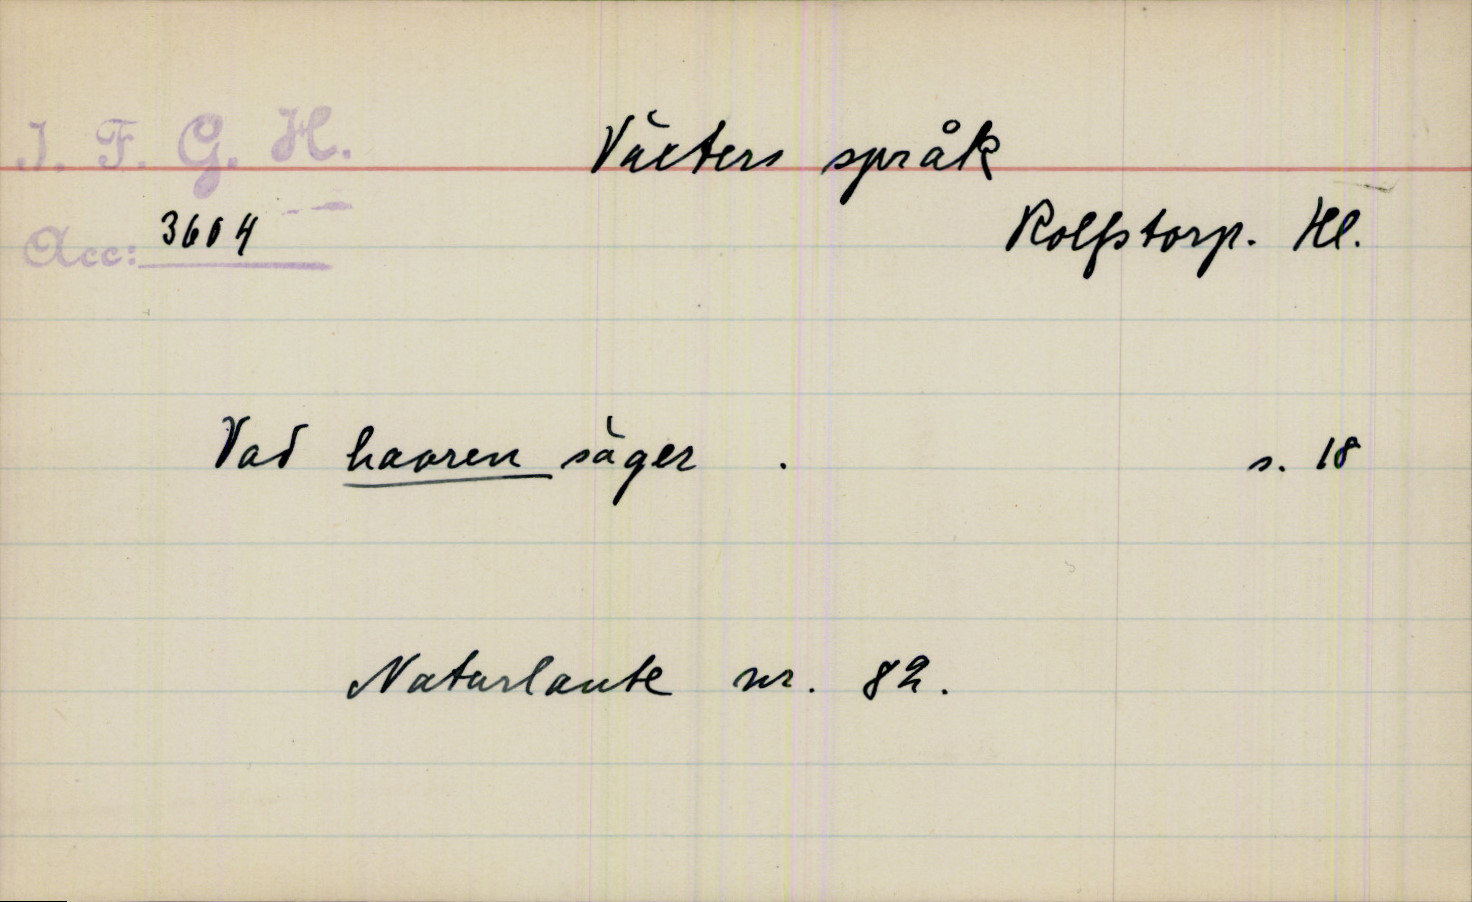 I. F. G. H.
Växters språk
Acc: 3604
Rolfstorp. Hl.
Vad havren säger . s. 18
Naturlaute nr. 82.